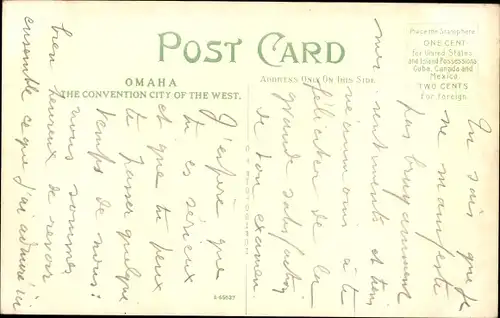 POST CARD
OMAHA
THE CONVENTION CITY OF THE WEST.
ADDRESS ONLY ON THIS SIDE
Place the Stamp here
ONE CENT
for United States
and Island Possessions
Cuba, Canada and
Mexico
TWO CENTS
for foreign
Tu sais que je
ne manifeste
pas bruyamment
mes sentiments et tiens
néanmoins à te
féliciter de la
grande satisfaction
de ton examen.
J'espère que
tu es sérieux
et que tu peux
te passer quelque
temps de nous:
nous sommes
bien heureux de revoir
ensemble ce que j'ai admiré ici